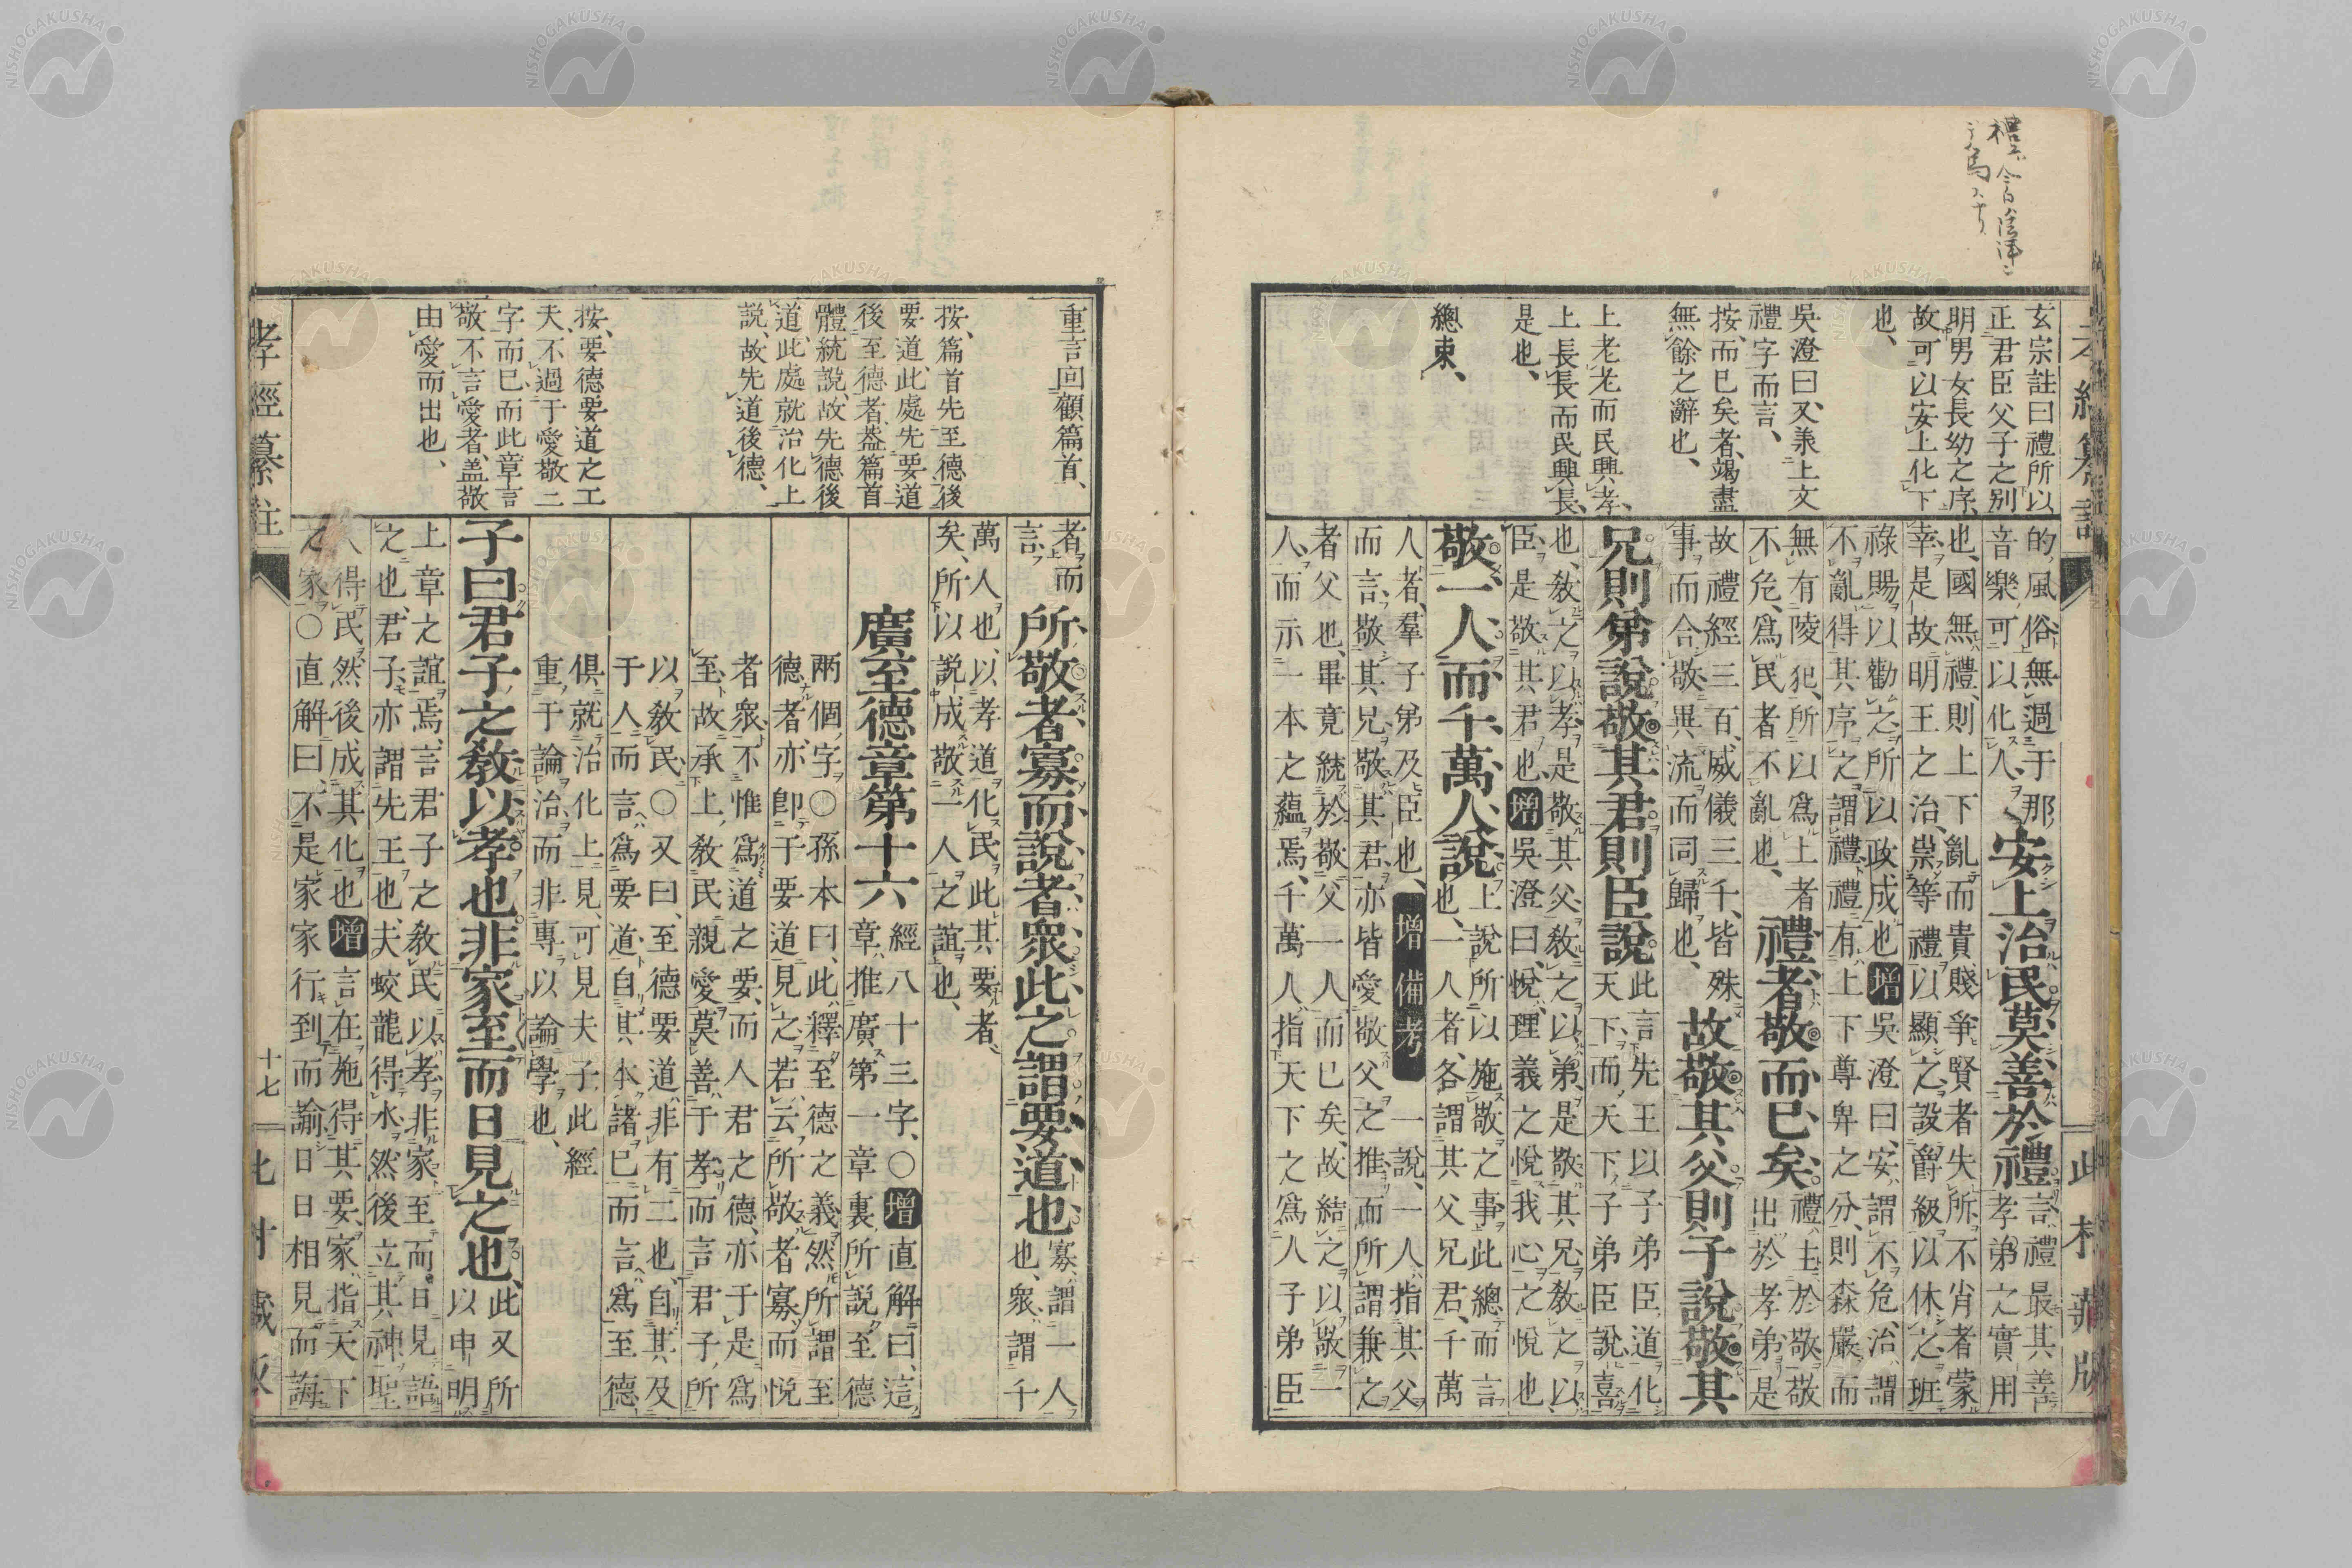 玄宗註曰禮所以
正君臣父子之别
明男女長幼之序
故可以安上化下
也、
吳澄曰又承上文
禮字而言、
按、而已矣者、竭盡
無餘之辭也、
上老老而民興孝、
上長長而民興長、
是也、
總束、
的風俗無過于那
音樂可以化人、
安上治民莫善於禮
言禮最其善
孝弟之實用
也、國無禮、則上下亂而貴賤爭賢者失所不肖者蒙
幸、是故明王之治、崇等禮以顯之設爵級以休之、班
祿賜以勸之所以政成也增吳澄曰、安謂不危、治謂
不亂得其序之謂禮禮有上下尊卑之分、則森嚴而
無有陵犯、所以爲上者
不危、爲民者不亂也、
禮者敬而已矣
禮主於敬敬
出於孝弟是
故禮經三百、威儀三千、皆殊
事而合敬異流而同歸也、
故敬其父則子說敬其
兄則弟說敬其君則臣說
此言先王以子弟臣道化
天下、而天下子弟臣說喜
也、敎之以孝是敬其父、敎之以弟是敬其兄敎之以
臣是敬其君也、增吳澄曰、悅理義之悅我心之悅也
敬一人而千萬人說
上說所以施敬之事此總而言
也、一人者、各謂其父兄君、千萬
人者、羣子弟及臣也、增備考一說、一人指其父
而言、敬其兄敬其君、亦皆愛敬父之推而所謂兼之
者父也、畢竟統於敬父一人而已矣、故結之以敬一
人、而示一本之蘊焉、千萬人指天下之爲人子弟臣
重言回顧篇首、
按、篇首先至德後
要道、此處先要道
後至德者、葢篇首
體統說、故先德後
道、此處就治化上
說、故先道後德、
按、要德要道之工
夫、不過于愛敬二
字而已、而此章言
敬不言愛者、盖敬
由愛而出也、
者而
言、
所敬者寡而說者衆此之謂要道也
寡謂一人
也、衆謂千
萬人也、以孝道化民此其要者、
矣、所以說成敬一人之誼也、
廣至德章第十六
經八十三字、〇增直解曰、這
章推廣第一章裏所說至德
兩個字〇孫本曰、此釋至德之義然所謂至
德者、亦卽于要道見之若云所敬者寡而悅
者衆、不惟爲道之要、而人君之德、亦于是爲
至、故承上、敎民親愛莫善于孝而言君子所
以敎民、〇又曰、至德要道、非有二也、自其及
于人而言爲要道、自其本諸已而言爲至德
俱就治化上見、可見夫子此經
重于論治而非專以論學也、
子曰君子之敎以孝也非家至而日見之也
此又所
以申明
上章之誼焉、言君子之敎民以孝非家至而日見語
之也、君子亦謂先王也、夫蛟龍得水然後立其神聖
人得民然後成其化也增言在施得其要、家指天下
之家〇直解曰、不是家家行到而諭日日相見而誨
孝經纂註
十七
此村藏版